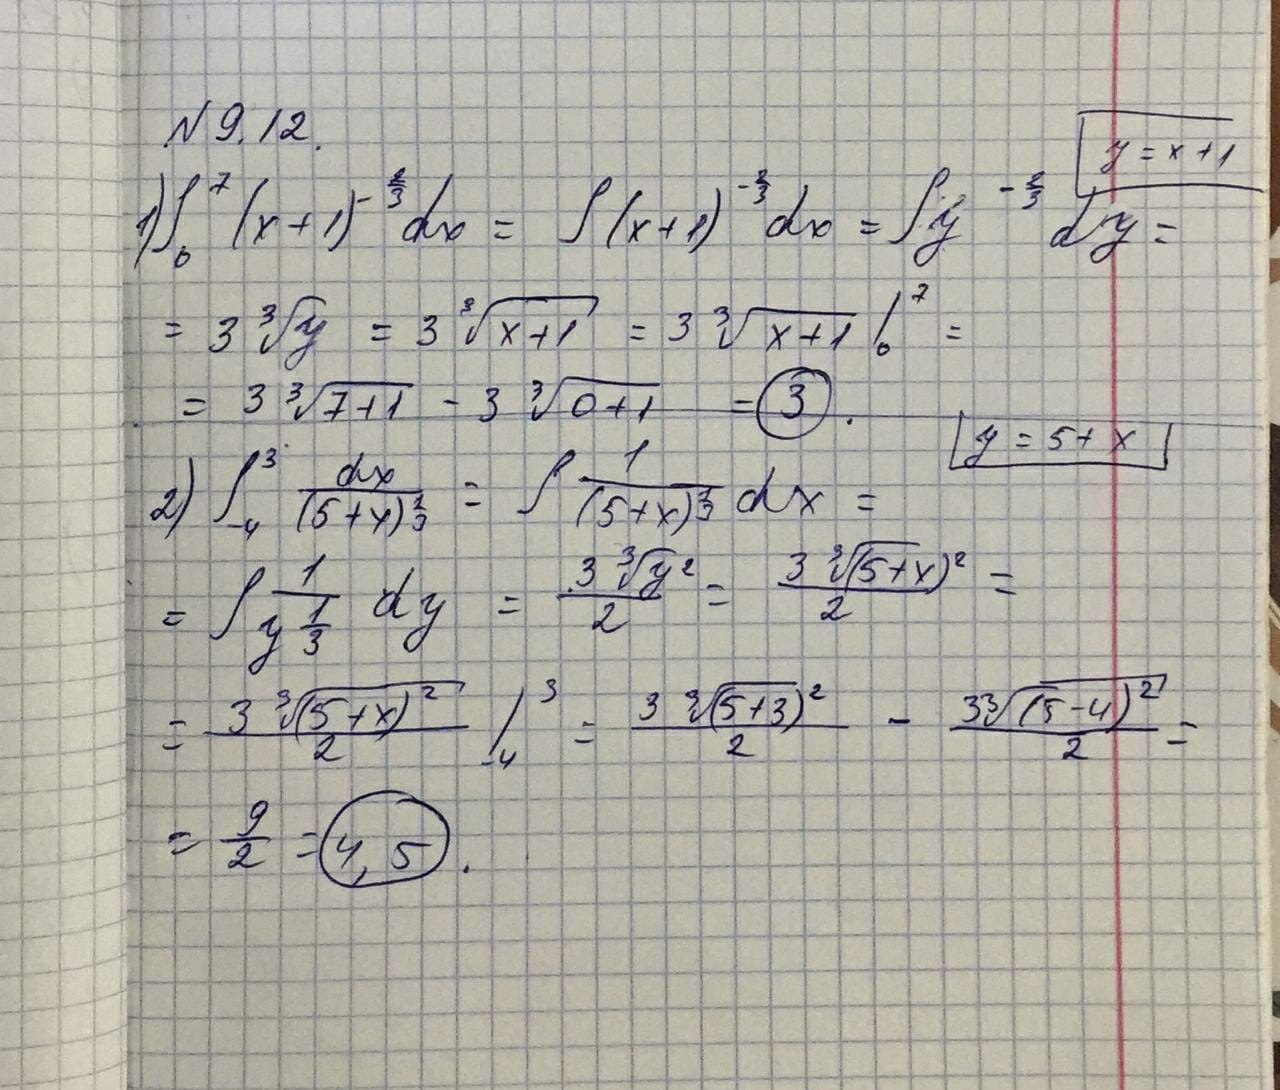 N 9.12.
y = x + 1
1) ∫₀⁷ (x+1)^(-2/3) dx = ∫ (x+1)^(-2/3) dx = ∫ y^(-2/3) dy =
= 3 ∛y = 3 ∛(x+1) = 3 ∛(x+1) |₀⁷ =
= 3 ∛(7+1) - 3 ∛(0+1) = 3.
y = 5 + x
2) ∫₋₄³ dx/(5+x)^(1/3) = ∫ 1/(5+x)^(1/3) dx =
= ∫ 1/y^(1/3) dy = 3 ∛y²/2 = 3 ∛(5+x)²/2 =
= 3 ∛(5+x)²/2 |₋₄³ = 3 ∛(5+3)²/2 - 3 ∛(5-4)²/2 =
= 9/2 = 4,5.